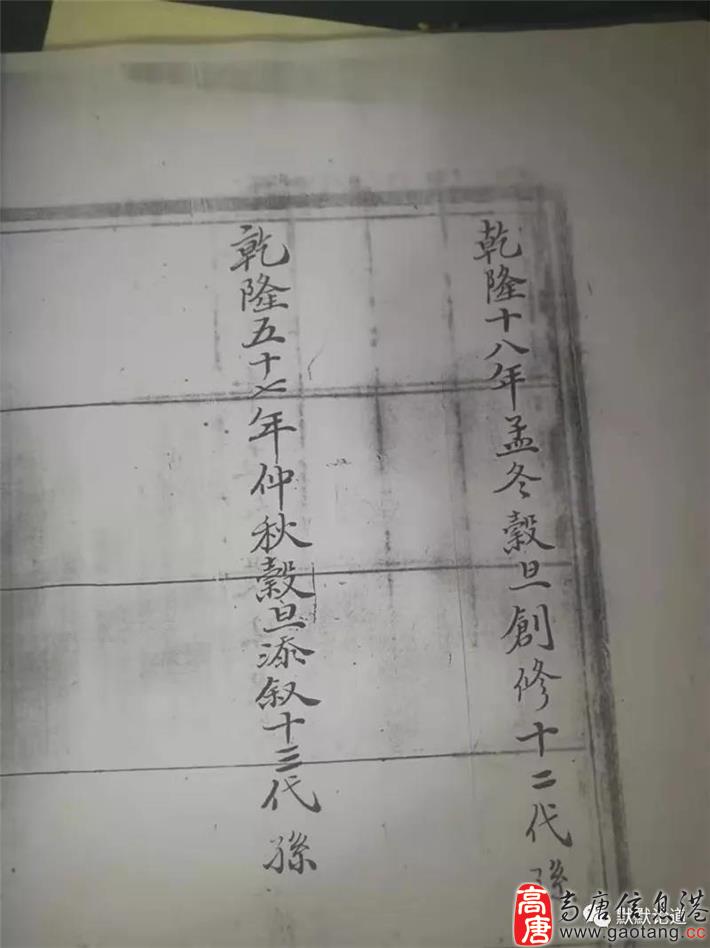 乾隆十八年孟冬穀旦創修十二代孫
乾隆五十七年仲秋穀旦添叙十三代孫
高唐
高唐信息港
默默论道
www.gaotang.cc